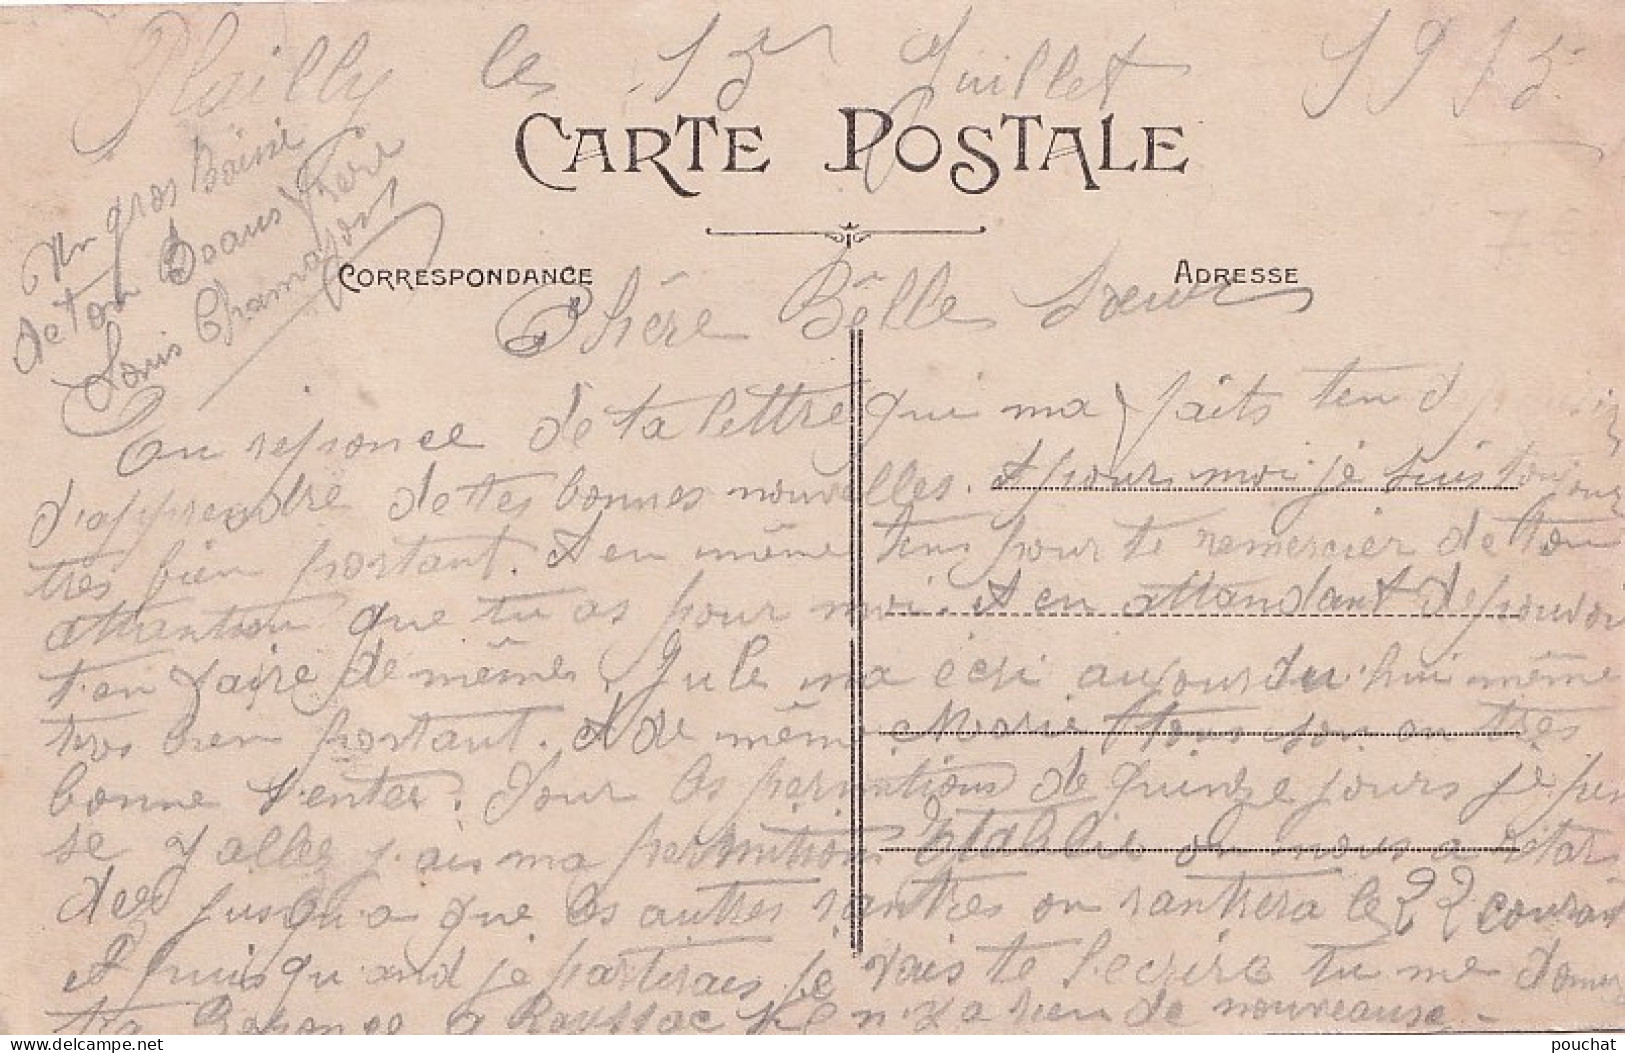 Plailly le 15 Juillet 1915
CARTE POSTALE
Un gros Baisé
de ton Beaus frere
Louis Chamayou
CORRESPONDANCE
ADRESSE
Chère Bêlle Sœur
En reponce de ta lettre qui ma faits ten de plaisir
d'apprendre de tes bonnes nouvelles. Et pour moi je suis toujour
très bien portant. Et en même tens pour te remercier de ton
attantion que tu as pour moi. Et en attandant de pouvoir
t'en faire de même, Jule ma écri aujourdu'hui même
tres bien portant. Et de même Marie tous son en très
bonne s'enter. Pour les permitions de quinze jours je pen
se y aller j'ais ma permition établie on nous a retar
der jusqu'a que les autres rantres on rantrera le 22 courant
et puis quand je partirais je vais te l'ecrire tu me donne
ta Reponce a Roussac il n'y a rien de nouveause.-
pouchat